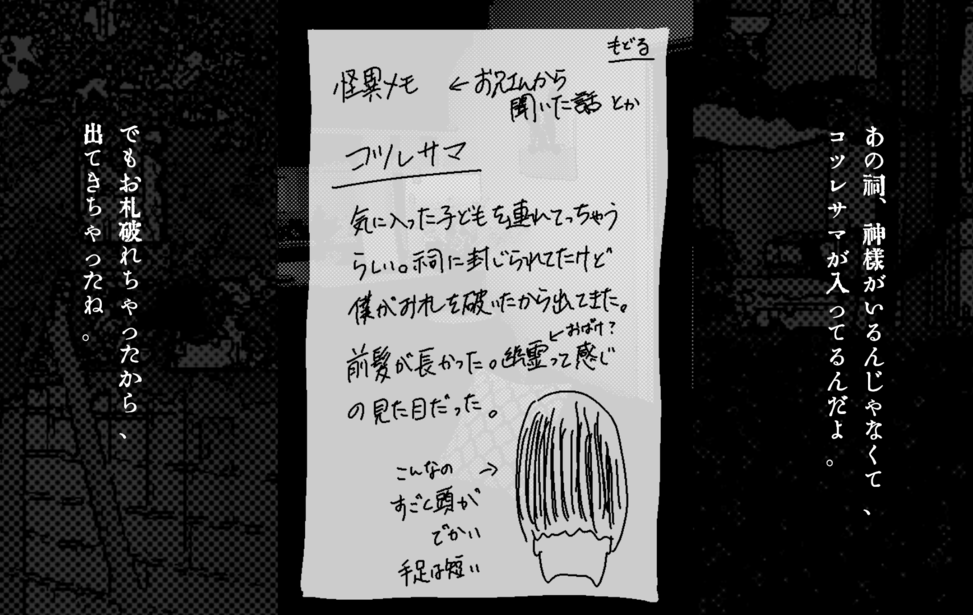 あの祠、神様がいるんじゃなくて、
コツレサマが入ってるんだよ。
もどる
怪異メモ ←お兄さんから
聞いた話とか
コツレサマ
気に入った子どもを連れてっちゃう
らしい。祠に封じられてたけど
僕がお札を破いたから出てきた。
←おばけ?
前髪が長かった。幽霊って感じ
の見た目だった。
こんなの→
すごく頭が
でかい
手足は短い
でもお札破れちゃったから、
出てきちゃったね。